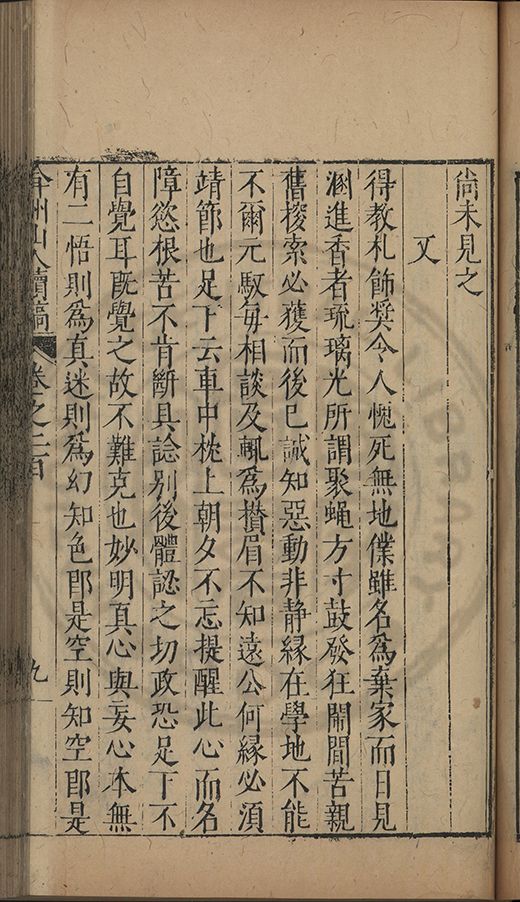 尚未見之
又
得教札飾奬令人愧死無地僕雖名為棄家而日見
溷進香者琉璃光所謂聚蝇方寸鼓發狂閙間苦親
舊梭索必獲而後已誠知惡動非静縁在學地不能
不爾元馭每相談及輒為攅眉不知遠公何縁必須
靖節也足下云車中枕上朝夕不忘提醒此心而名
障慾根苦不肯斷具諗别後體認之切政恐足下不
自覺耳既覺之故不難克也妙明真心與妄心本無
有二悟則為真迷則為幻知色即是空則知空即是
弇州山人續稿 卷之二百 九